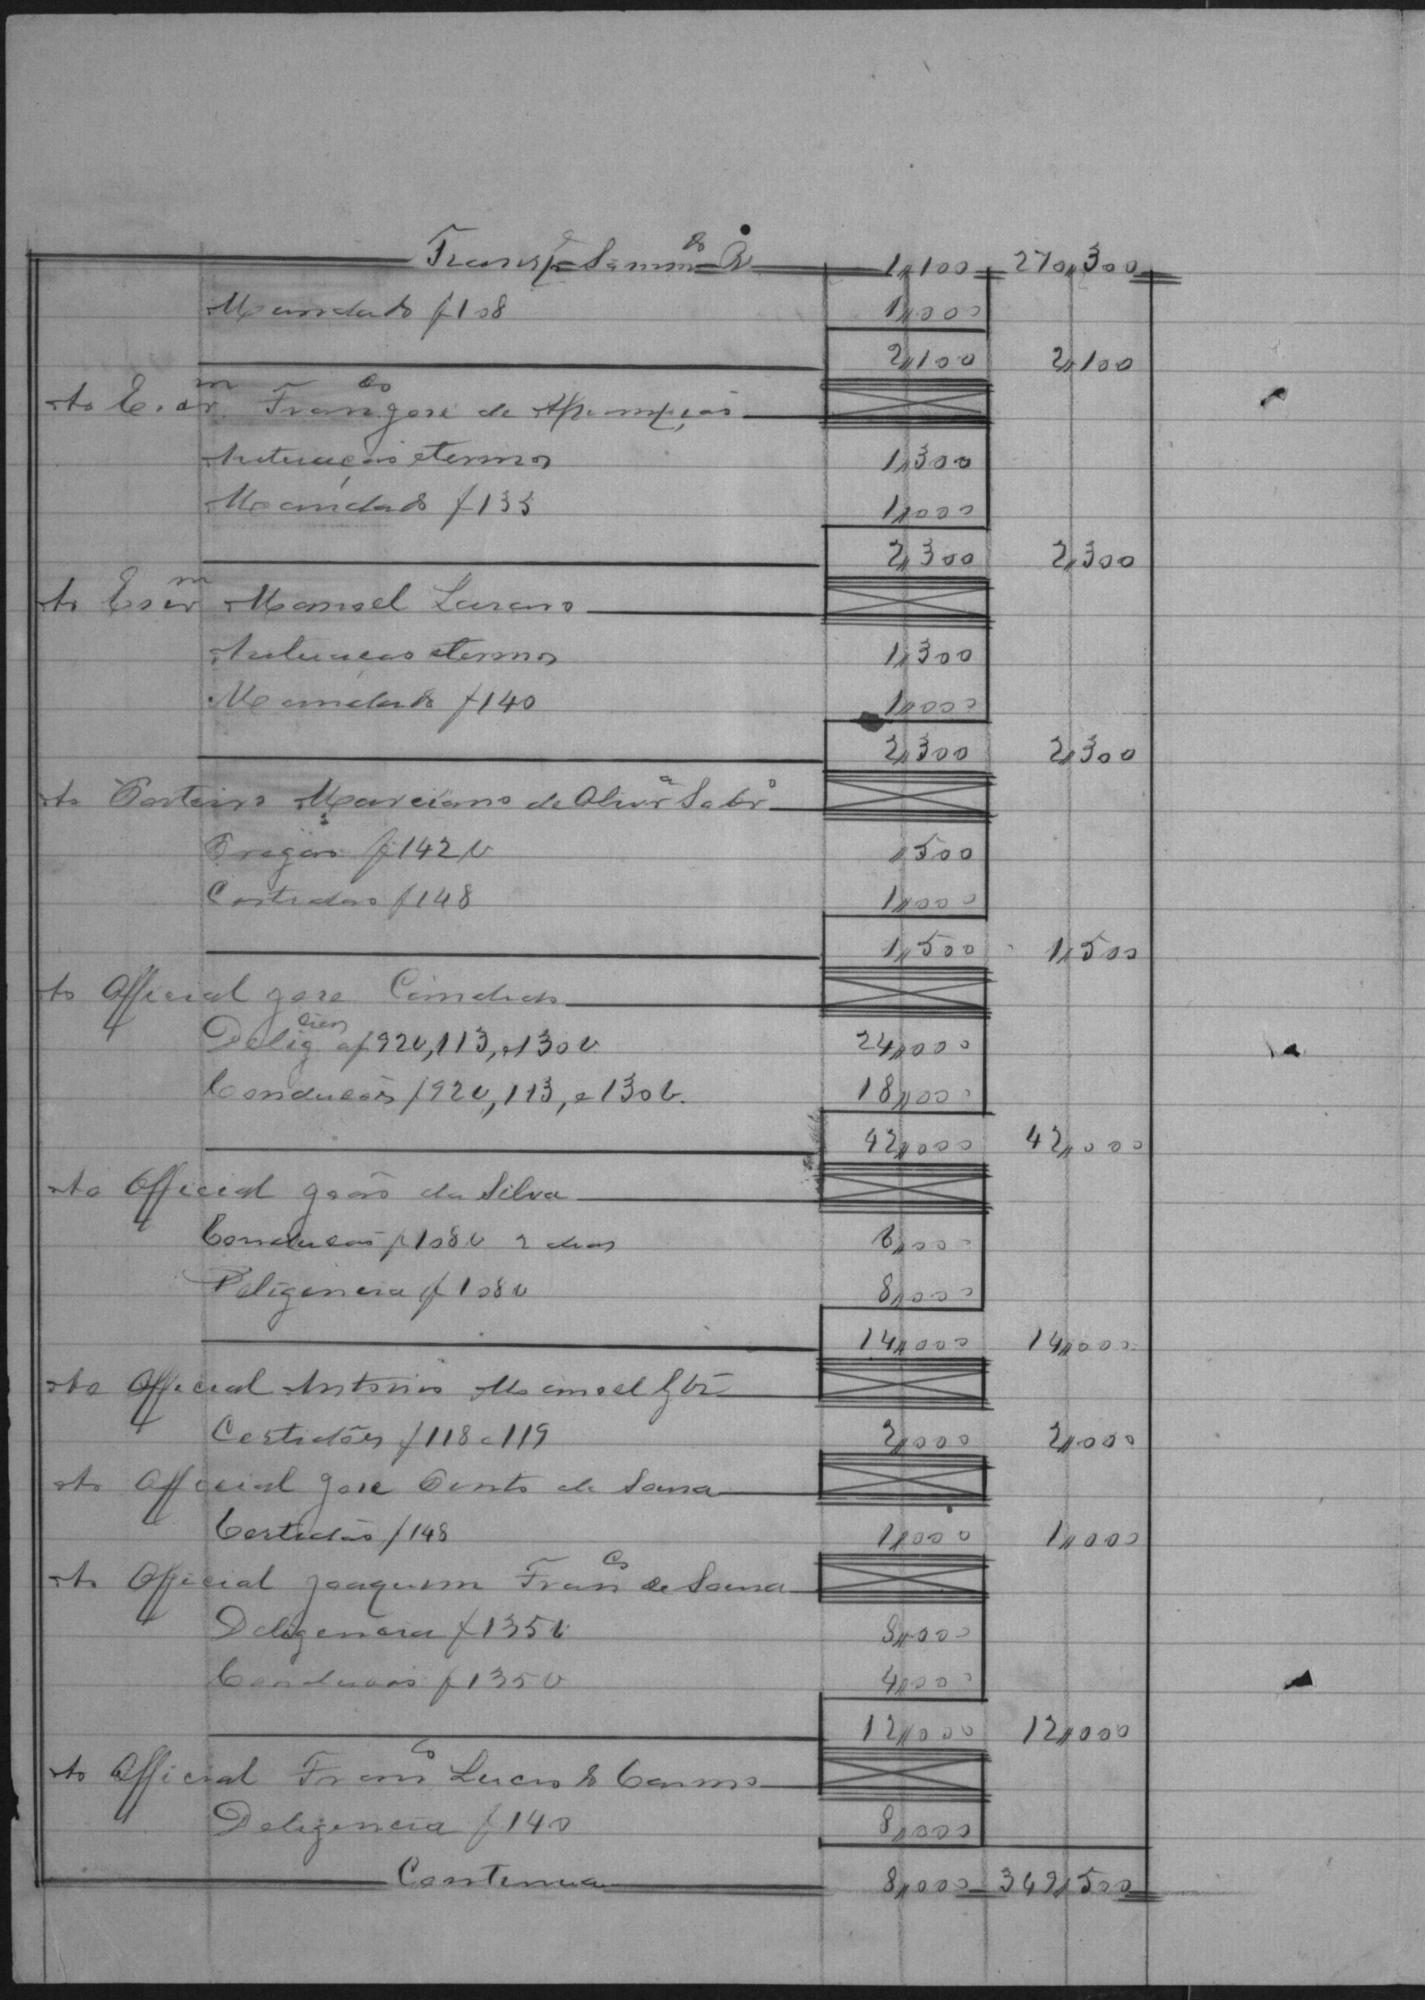 Transp.e Somma do R 1,,100 270,,300
Mandado f 108 1,,000
2,,100 2,,100
Ao Escr.m Fran.co José de Assumpção
Autuação e termos 1,,300
Mandado f 133 1,,000
2,,300 2,,300
Ao Escr.m Manoel Lazaro
Autuação e termos 1,,300
Mandado f 140 1,,000
2,,300 2,,300
Ao Porteiro Marciano de Olivr.a Sobr.o
Pregão f 142 v ,,500
Certidão f 148 1,,000
1,,500 1,,500
Ao Official José Candido
Delig.cias af 92v, 113, e 130 v 24,,000
Conducões f 92v, 113, e 130 v. 18,,000
42,,000 42,,000
Ao Official João da Silva
Conducão f 108 v 2 dias 6,,000
Deligencia f 108 v 8,,000
14,,000 14,,000
Ao Official Antonio Manoel
Certidões f 118 e 119 2,,000 2,,000
Ao Official José Pinto de Sousa
Certidão f 148 1,,000 1,,000
Ao Official Joaquim Fran.co de Sousa
Deligencia f 135 v 8,,000
Conducão f 135 v 4,,000
12,,000 12,,000
Ao Official Fran.co Lucio do Carmo
Deligencia f 140 8,,000
Continua 8,,000 349,,500